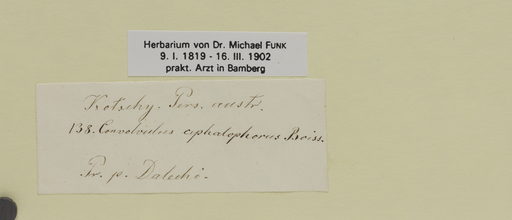 Herbarium von Dr. Michael FUNK
9. I. 1819 - 16. III. 1902
prakt. Arzt in Bamberg
Kotschy. Pers. austr.
138. Convolvulus cephalophorus Boiss.
Pr. p. Dalechi.